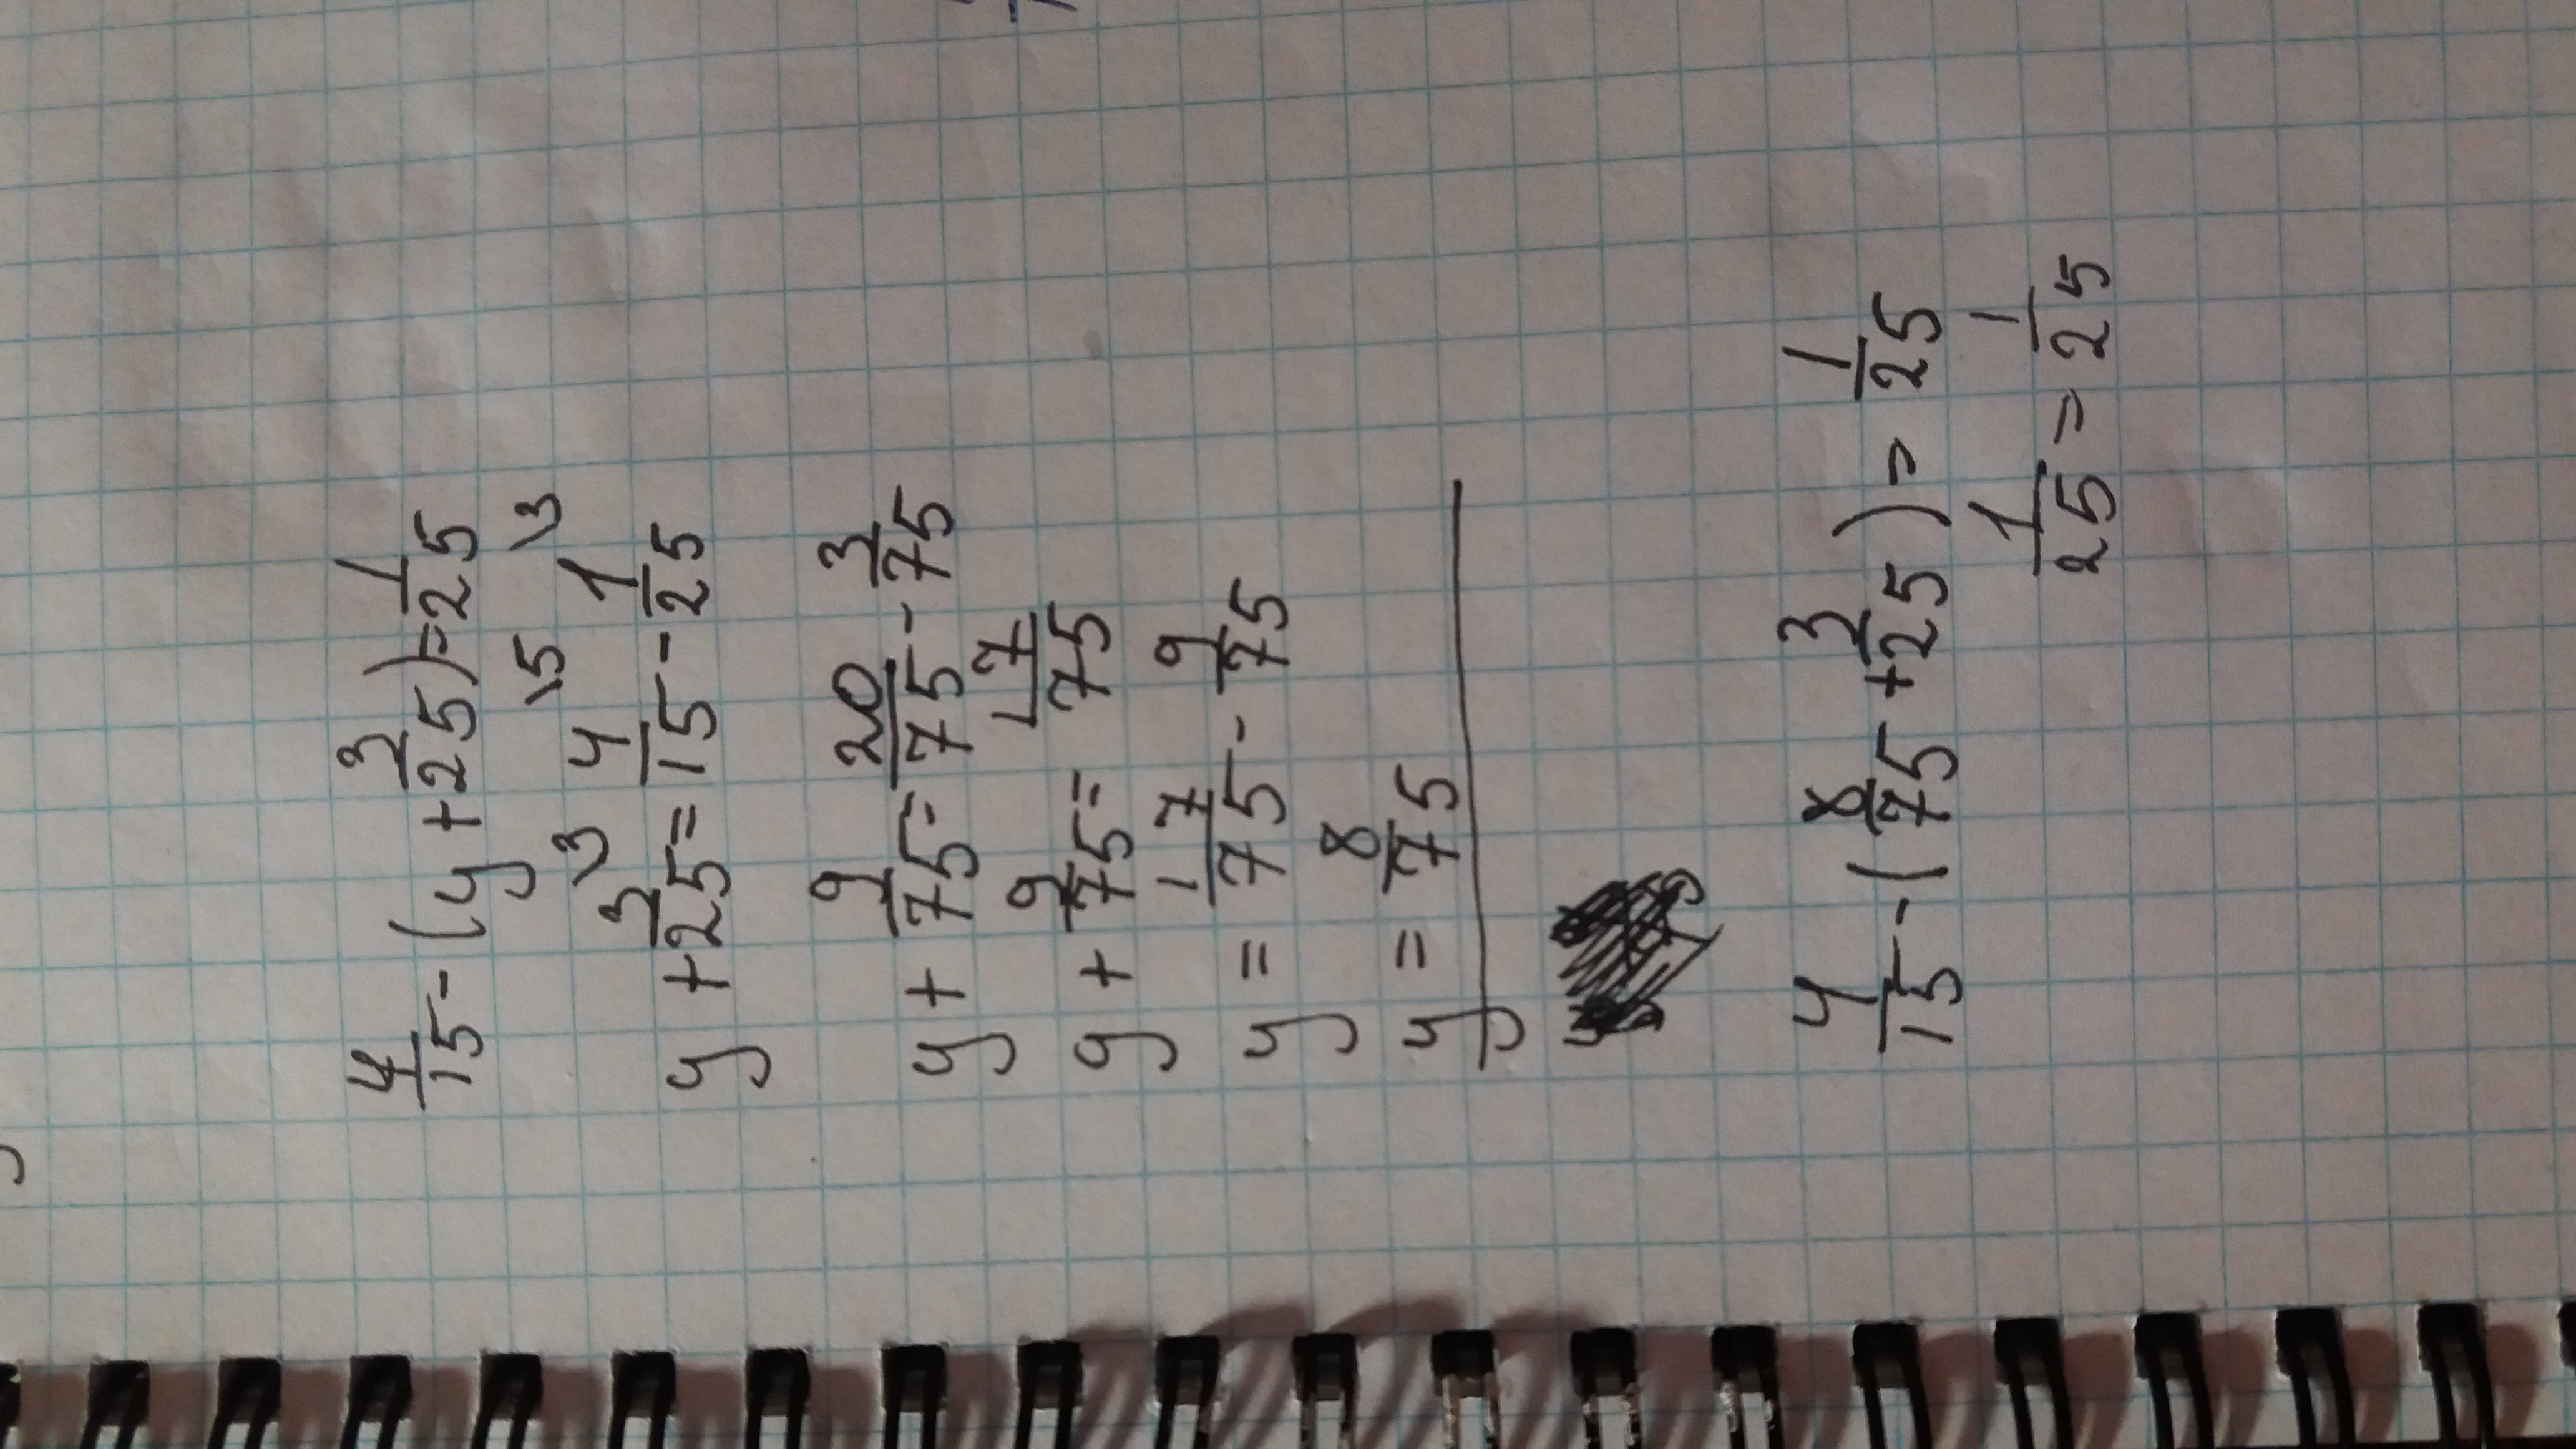 4/15 - (y + 3/25) = 1/25
\3 \5 \3
y + 3/25 = 4/15 - 1/25
y + 9/75 = 20/75 - 3/75
y + 9/75 = 17/75
y = 17/75 - 9/75
y = 8/75
4/15 - (8/75 + 3/25) = 1/25
1/25 = 1/25